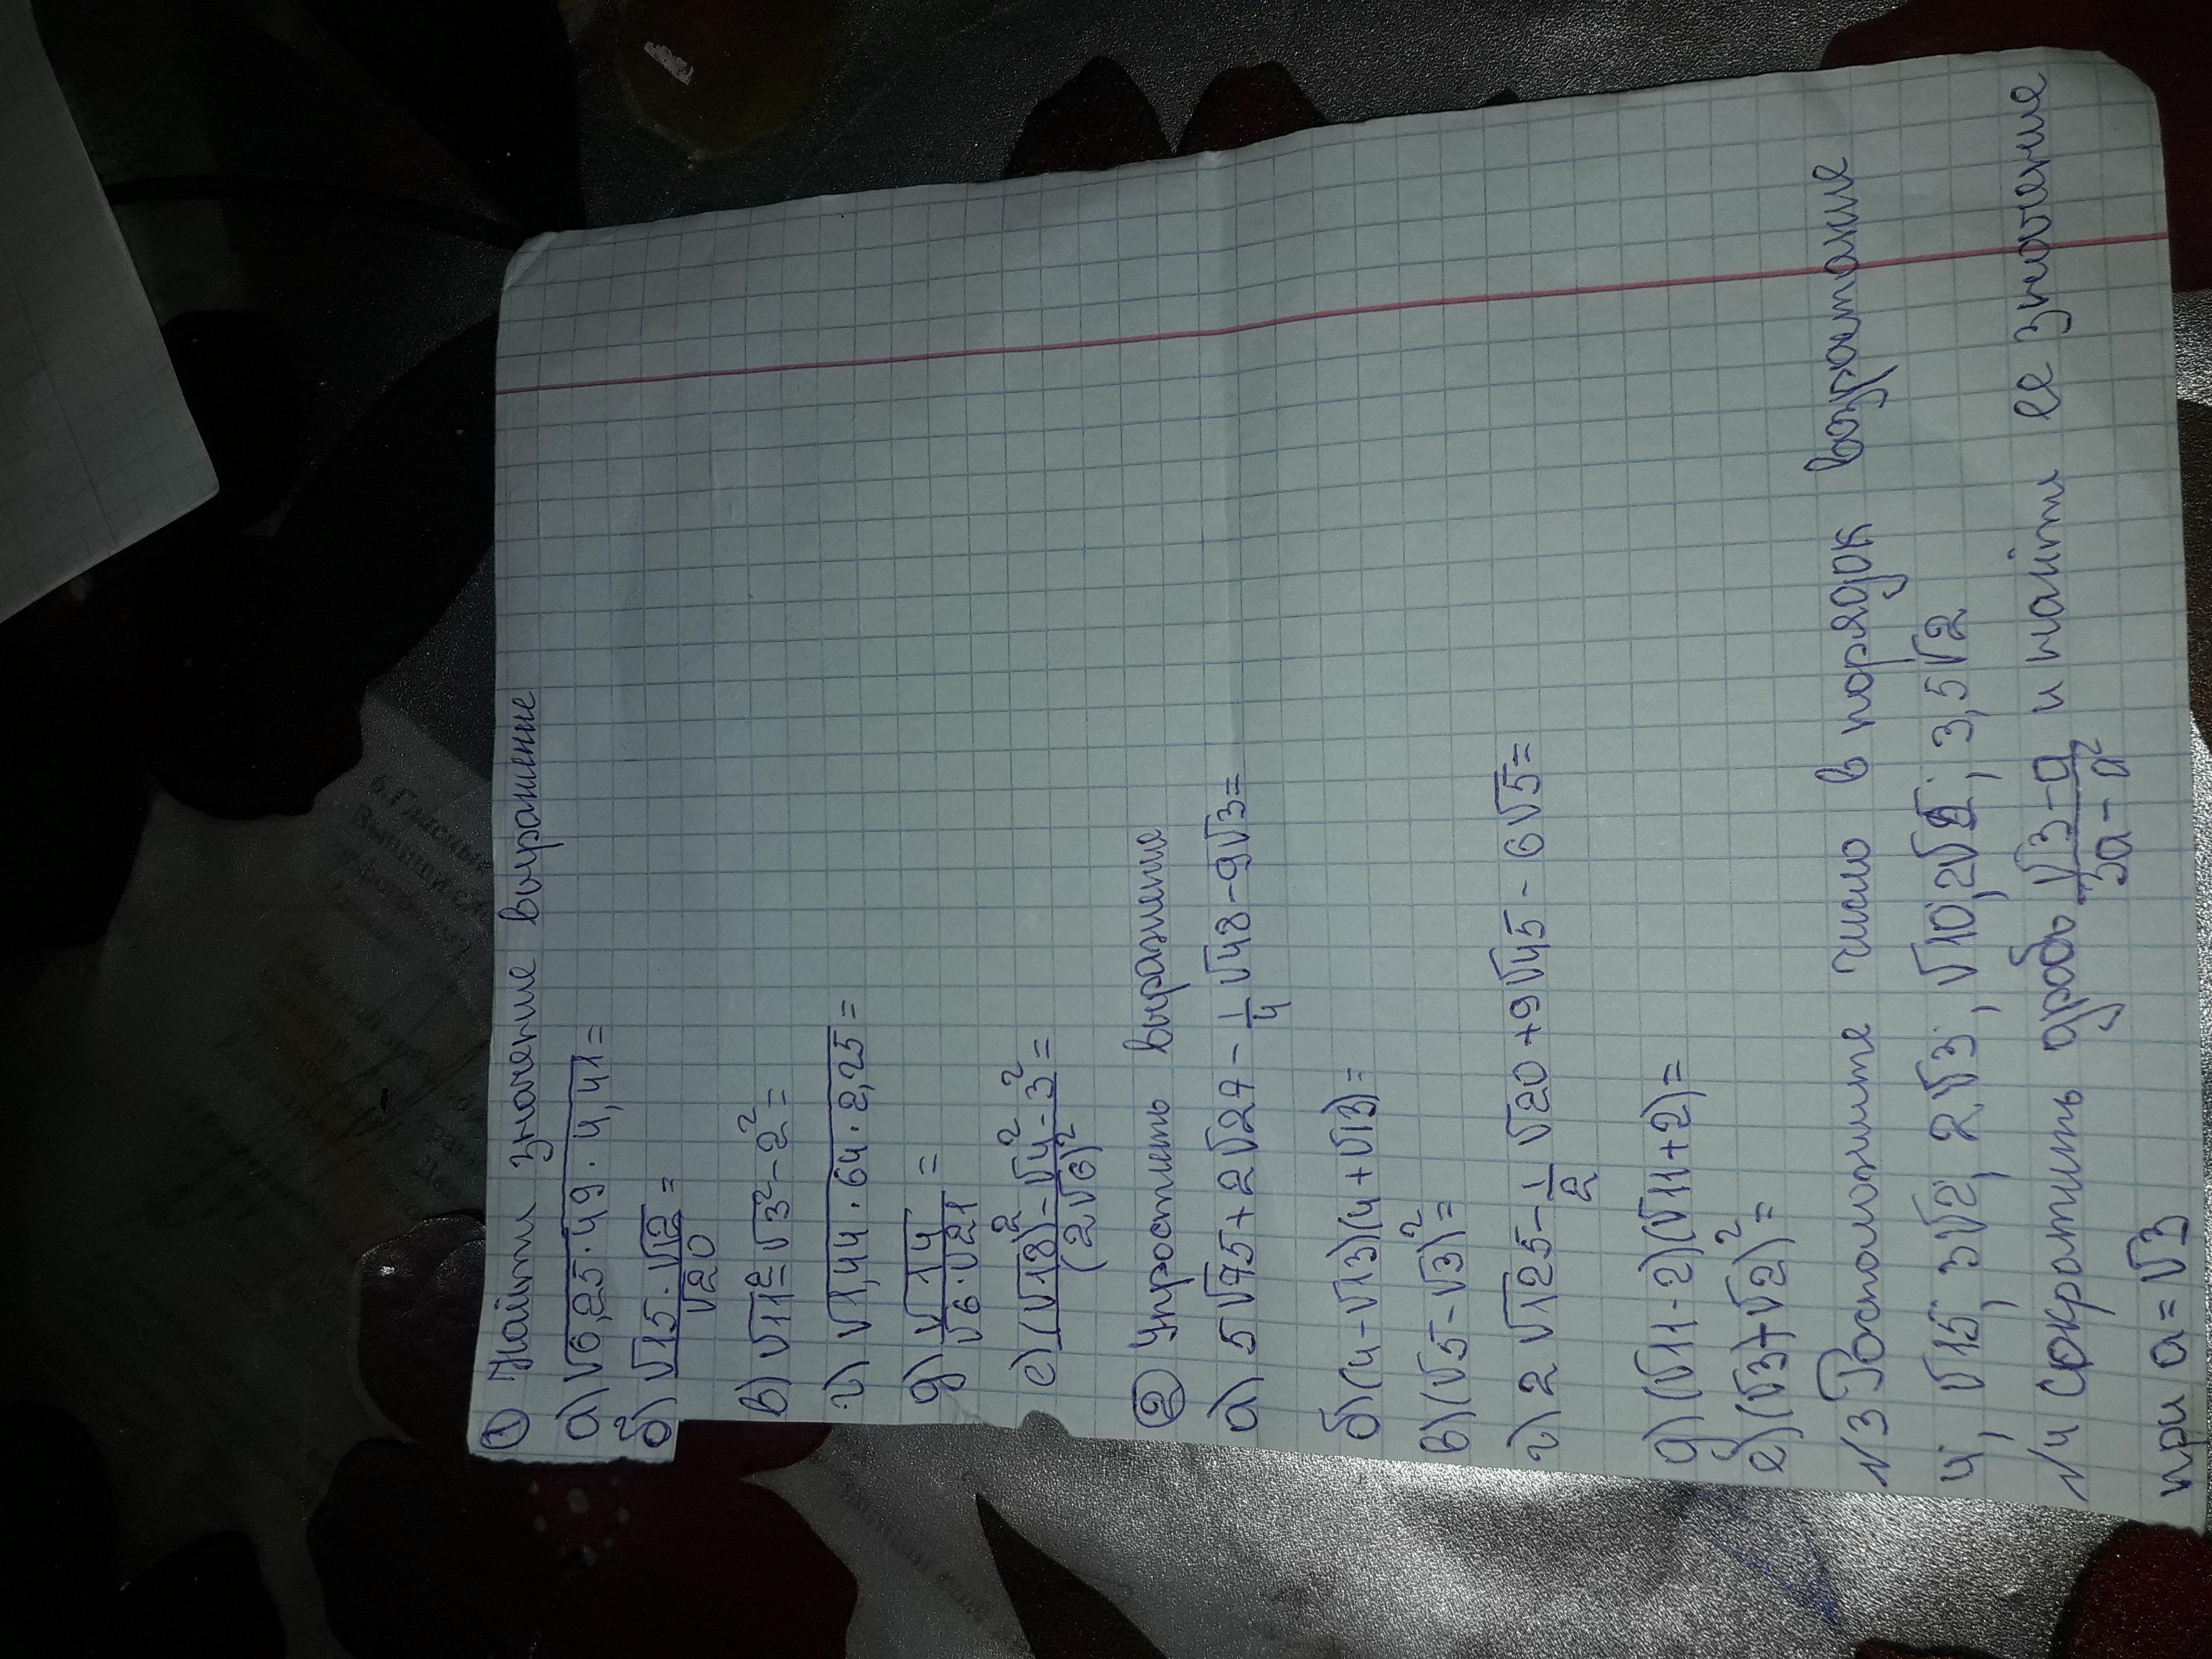 ① Найти значение выражение
а) √6,25·49·4,41 =
б) √15·√12 / √20 =
в) √11² - √3² - 2² =
г) √1,44·64·2,25 =
д) √14 / √6·√21 =
е) (√18)² - √4² - 3² / (2√6)² =
② Упростить выражение
а) 5√75 + 2√27 - 1/4 √48 - 9√3 =
б) (4 - √13)(4 + √13) =
в) (√5 - √3)² =
г) 2√125 - 1/2 √20 + 9√45 - 6√5 =
д) (√11 - 2)(√11 + 2) =
е) (√3 + √2)² =
№3 Расположите число в порядок возрастание
4, √15, 3√2, 2√3, √10, 2√2, 3,5√2
№4 сократить дробь √3 - а / 3а - а² и найти ее значение
при а = √3